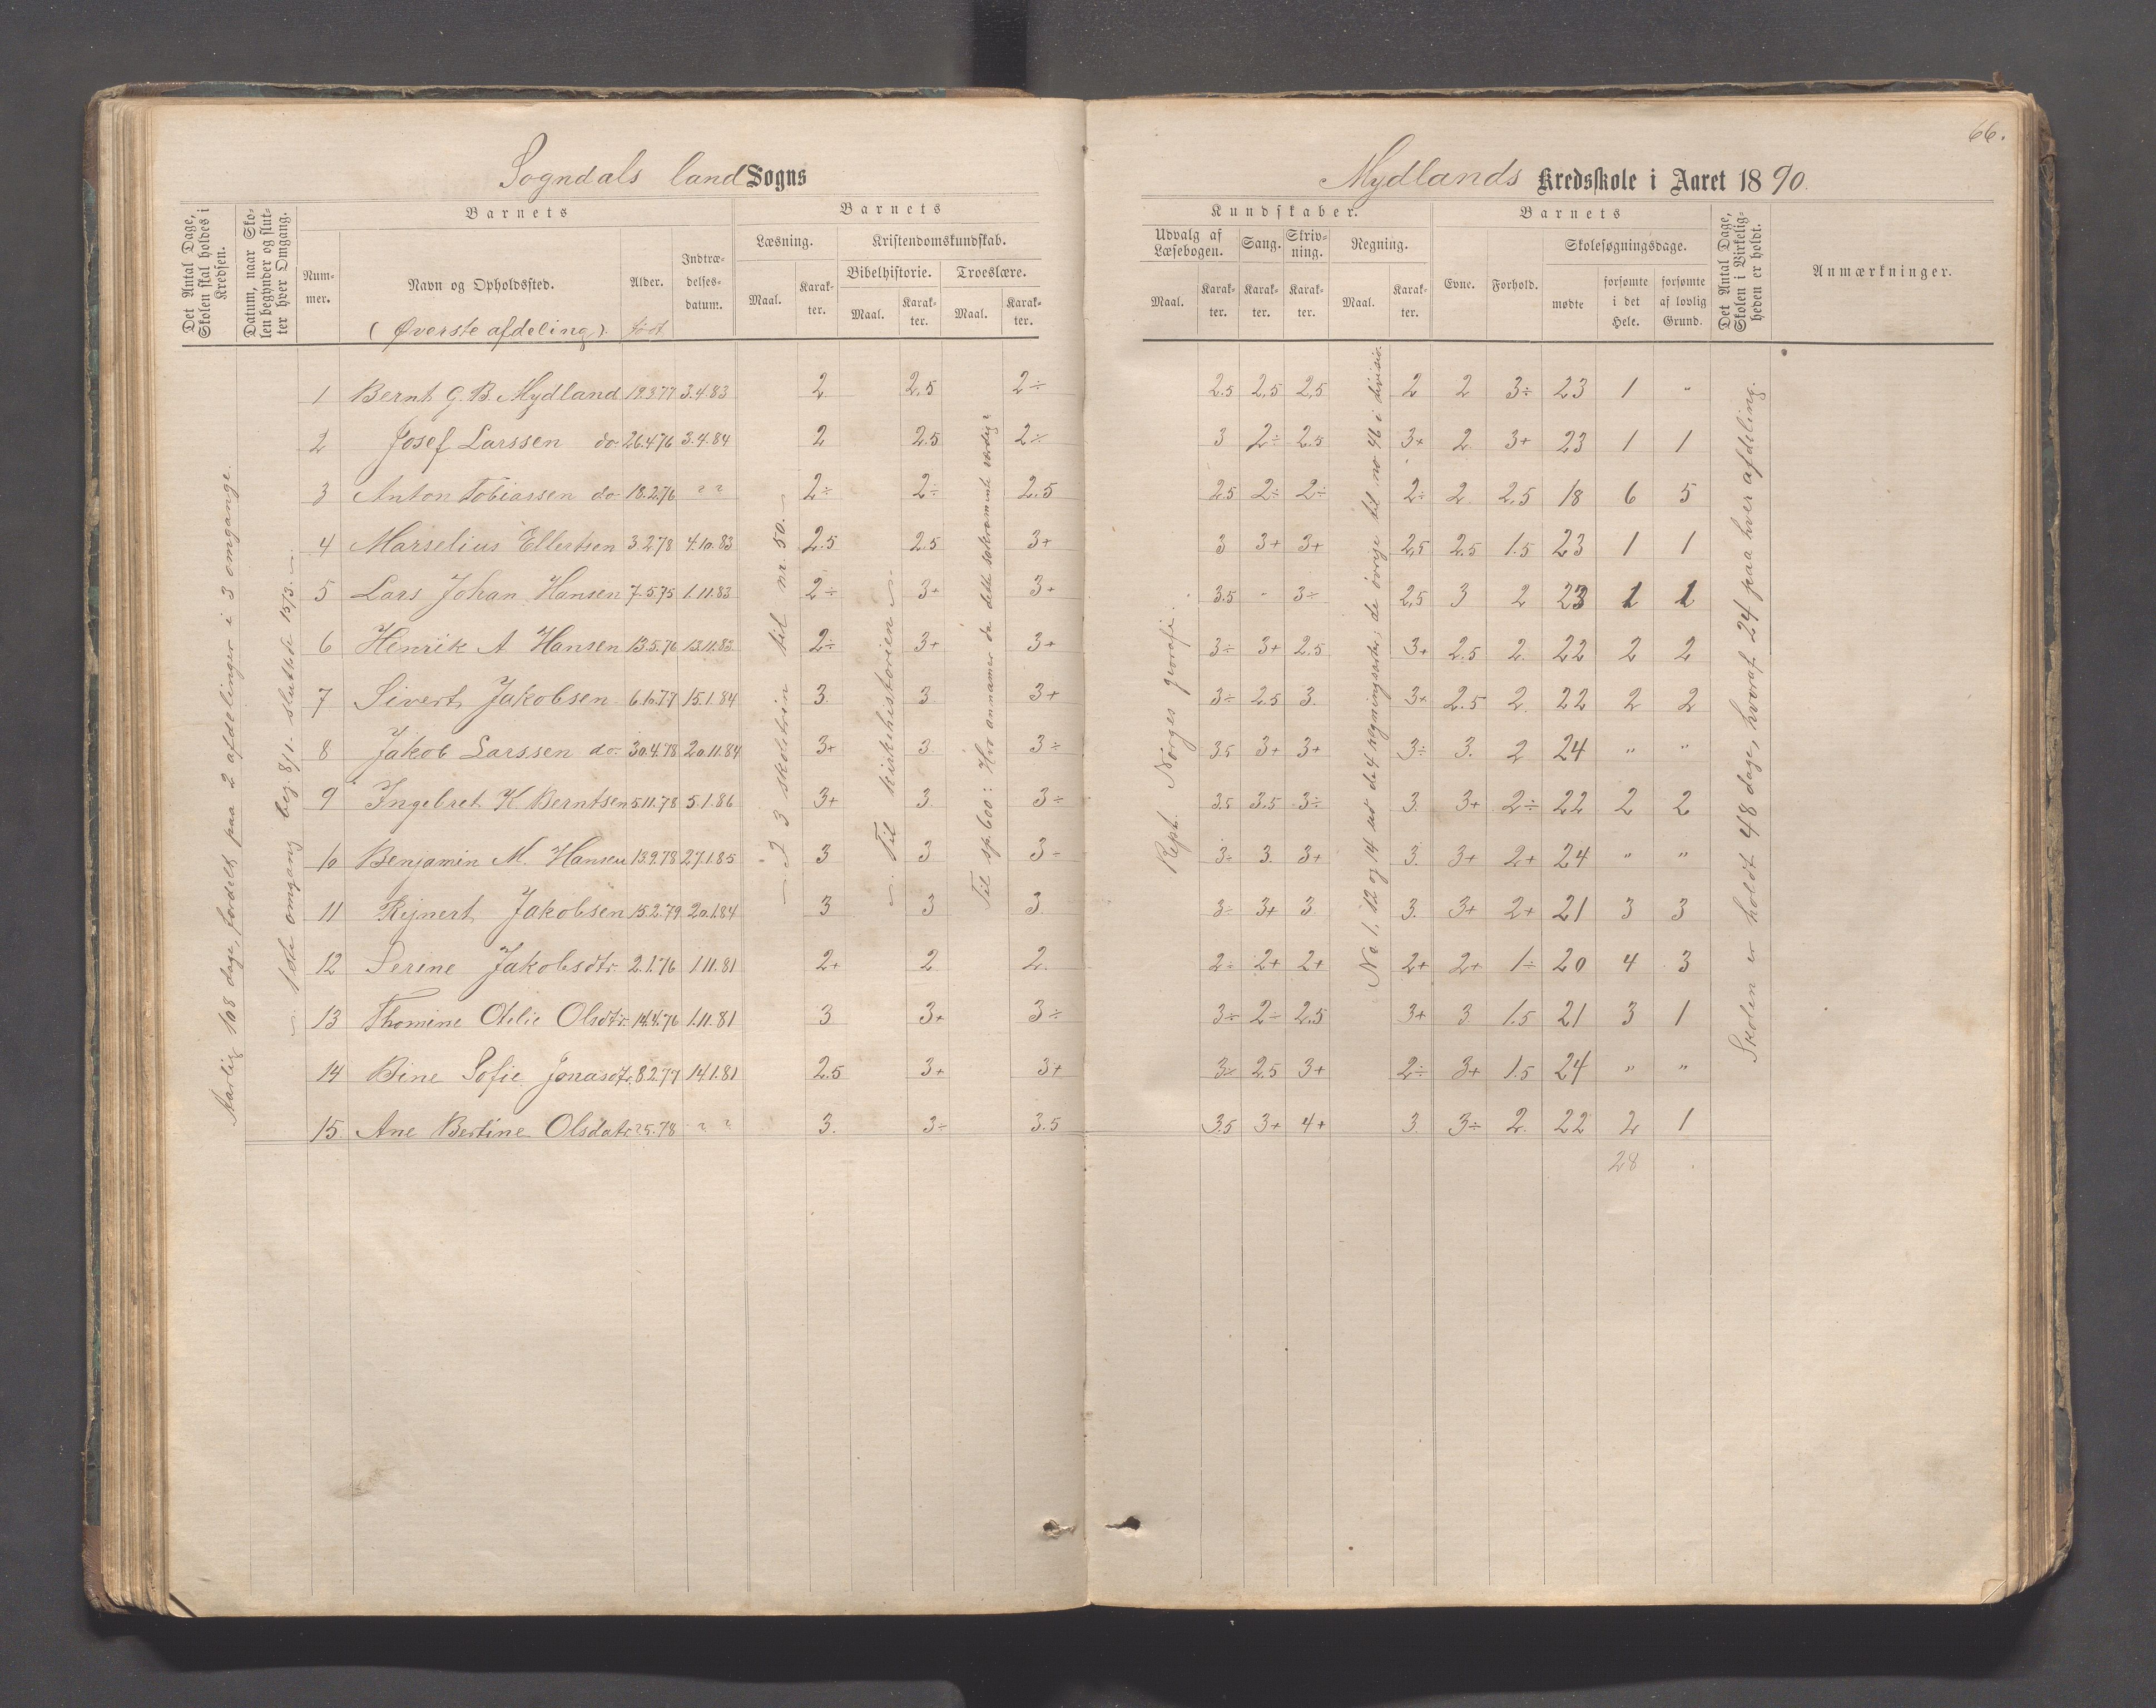 66.
Sogndals land Sogns
Mydlands Kredsskole i Aaret 1890.
Det Antal Dage, Skolen skal holdes i Kredsen.
Datum, naar Skolen begynder og slutter hver Omgang.
Barnets
Nummer.
Navn og Opholdssted.
(Øverste afdeling)
Alder.
født
Indtrædelsesdatum.
Barnets
Læsning.
Maal.
Karakter.
Kristendomskundskab.
Bibelhistorie.
Maal.
Karakter.
Troeslære.
Maal.
Karakter.
Kundskaber.
Udvalg af Læsebogen.
Maal.
Karakter.
Sang.
Karakter.
Skrivning.
Karakter.
Regning.
Maal.
Karakter.
Barnets
Evne.
Forhold.
Skolesøgningsdage.
mødte
forsømte i det Hele.
forsømte af lovlig Grund.
Det Antal Dage, Skolen i Virkeligheden er holdt.
Anmærkninger.
Aarlig 108 dage, fordelt paa 2 afdelinger i 3 omgange.
1ste omgang beg. 8/1 - sluttet 15/3.
I 3 skoletrin til nr. 50.
Til kirkehistorien
Til sp. 600: Hvo annamer da dette sakramente værdig?
Rept. Norges geografi.
No 1, 12 og 14 ud de 4 regningsarter; de øvrige til no 46 i division.
Skolen er holdt 48 dage, hvoraf 24 paa hver afdeling.
1 Bernt G. B. Mydland 19.3.77 3.4.83 2 2,5 2÷ 2.5 2,5 2,5 2 2 3÷ 23 1 "
2 Josef Larssen do 26.4.76 3.4.84 2 2.5 2÷ 3 2÷ 2.5 3+ 2 3+ 23 1 1
3 Anton Tobiassen do 18.2.76 ? ? 2÷ 2÷ 2.5 2.5 2÷ 2÷ 2÷ 2 2,5 18 6 5
4 Marselius Ellertsen 3.2.78 4.10.83 2.5 2.5 3+ 3 3+ 3+ 2,5 2.5 1.5 23 1 1
5 Lars Johan Hansen 7.5.75 1.11.83 2÷ 3+ 3+ 3.5 - 3÷ 2,5 3 2 23 1 1
6 Henrik A Hansen 13.5.76 13.11.83 2÷ 3+ 3+ 3÷ 3+ 2.5 3+ 2.5 2. 22 2 2
7 Sivert Jakobsen 6.10.77 15.1.84 3. 3 3+ 3÷ 2.5 3. 3+ 2.5 2. 22 2 2
8 Jakob Larssen do 30.4.78 20.11.84 3+ 3 3÷ 3.5 3+ 3+ 3÷ 3. 2 24 " "
9 Ingebret K Berntsen 5.11.78 5.1.86 3+ 3 3÷ 3.5 3.5 3÷ 3. 3+ 2÷ 22 2 2
10 Benjamin M. Hansen 13.9.78 27.1.85 3 3 3÷ 3÷ 3. 3+ 3. 3+ 2+ 24 " "
11 Rejnert Jakobsen 15.2.79 20.1.84 3 3 3 3÷ 3+ 3 3. 3+ 2+ 21 3 3
12 Serine Jakobsdtr. 2.1.76 1.11.81 2+ 2 2. 2÷ 2+ 2+ 2+ 2+ 1÷ 20 4 3
13 Thomine Otilie Olsdtr. 14.4.76 1.11.81 3 3+ 3÷ 3÷ 2÷ 2.5 3+ 3 1.5 21 3 1
14 Bine Sofie Jonasdtr. 8.2.77 14.1.81 2.5 3+ 3+ 3÷ 2,5 3+ 2÷ 3+ 1.5 24 " "
15. Ane Bertine Olsdatr ?.5.78 ? ? 3. 3÷ 3.5 3.5 3+ 4+ 3. 3÷ 2. 22 2 1
28